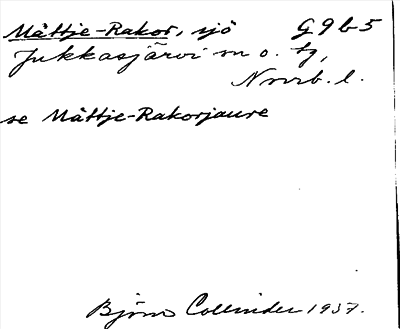 Måttje-Rakor, sjö G9b5
Jukkasjärvi sn o. tg,
Norrb. l.
se Måttje-Rakorjaure
Björn Collinder 1937.